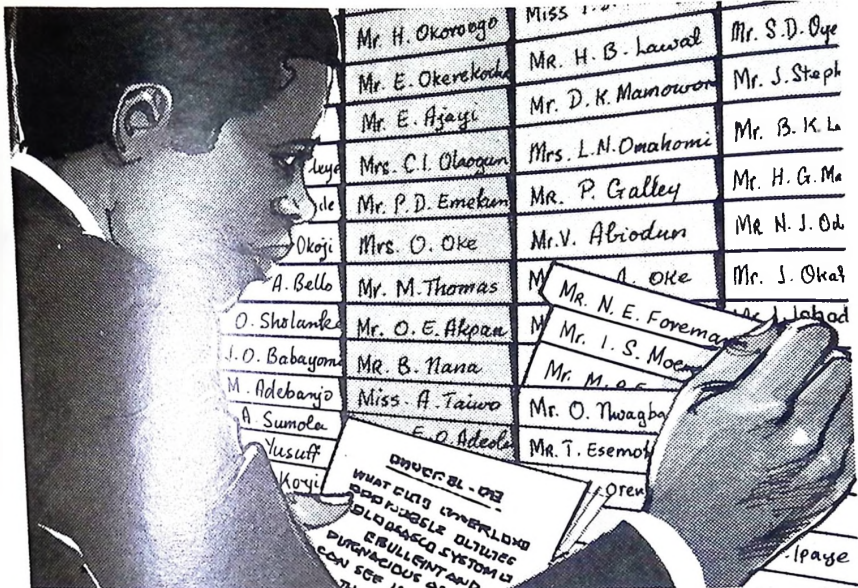 Okoji
A. Bello
O. Sholanke
J.O. Babayomi
M. Adebanjo
A. Sumola
Yusuff
Koyi
Mr. H. Okorogo
Mr. E. Okerekocha
Mr. E. Ajayi
Mrs. C.I. Olaogun
Mr. P.D. Emekun
Mrs. O. Oke
Mr. M. Thomas
Mr. O. E. Akpan
MR. B. Nana
Miss. A. Taiwo
E. O. Adeol
Miss
MR. H. B. Lawal
Mr. D. K. Mamowor
Mrs. L.N. Omahomi
MR. P. Galley
Mr. V. Abiodun
A. OKE
MR. N. E. Foreman
Mr. I. S. Moem
Mr.
Mr. O. Nwagba
MR. T. Esemot
Oren
Mr. S.D. Oye
Mr. J. Steph
Mr. B. K. L
Mr. H. G. Ma
MR N. J. Od
Mr. J. Okaf
Ipaye
WHAT
SYSTEM
EBULLEINT AND
PUGNACIOUS
CAN SEE